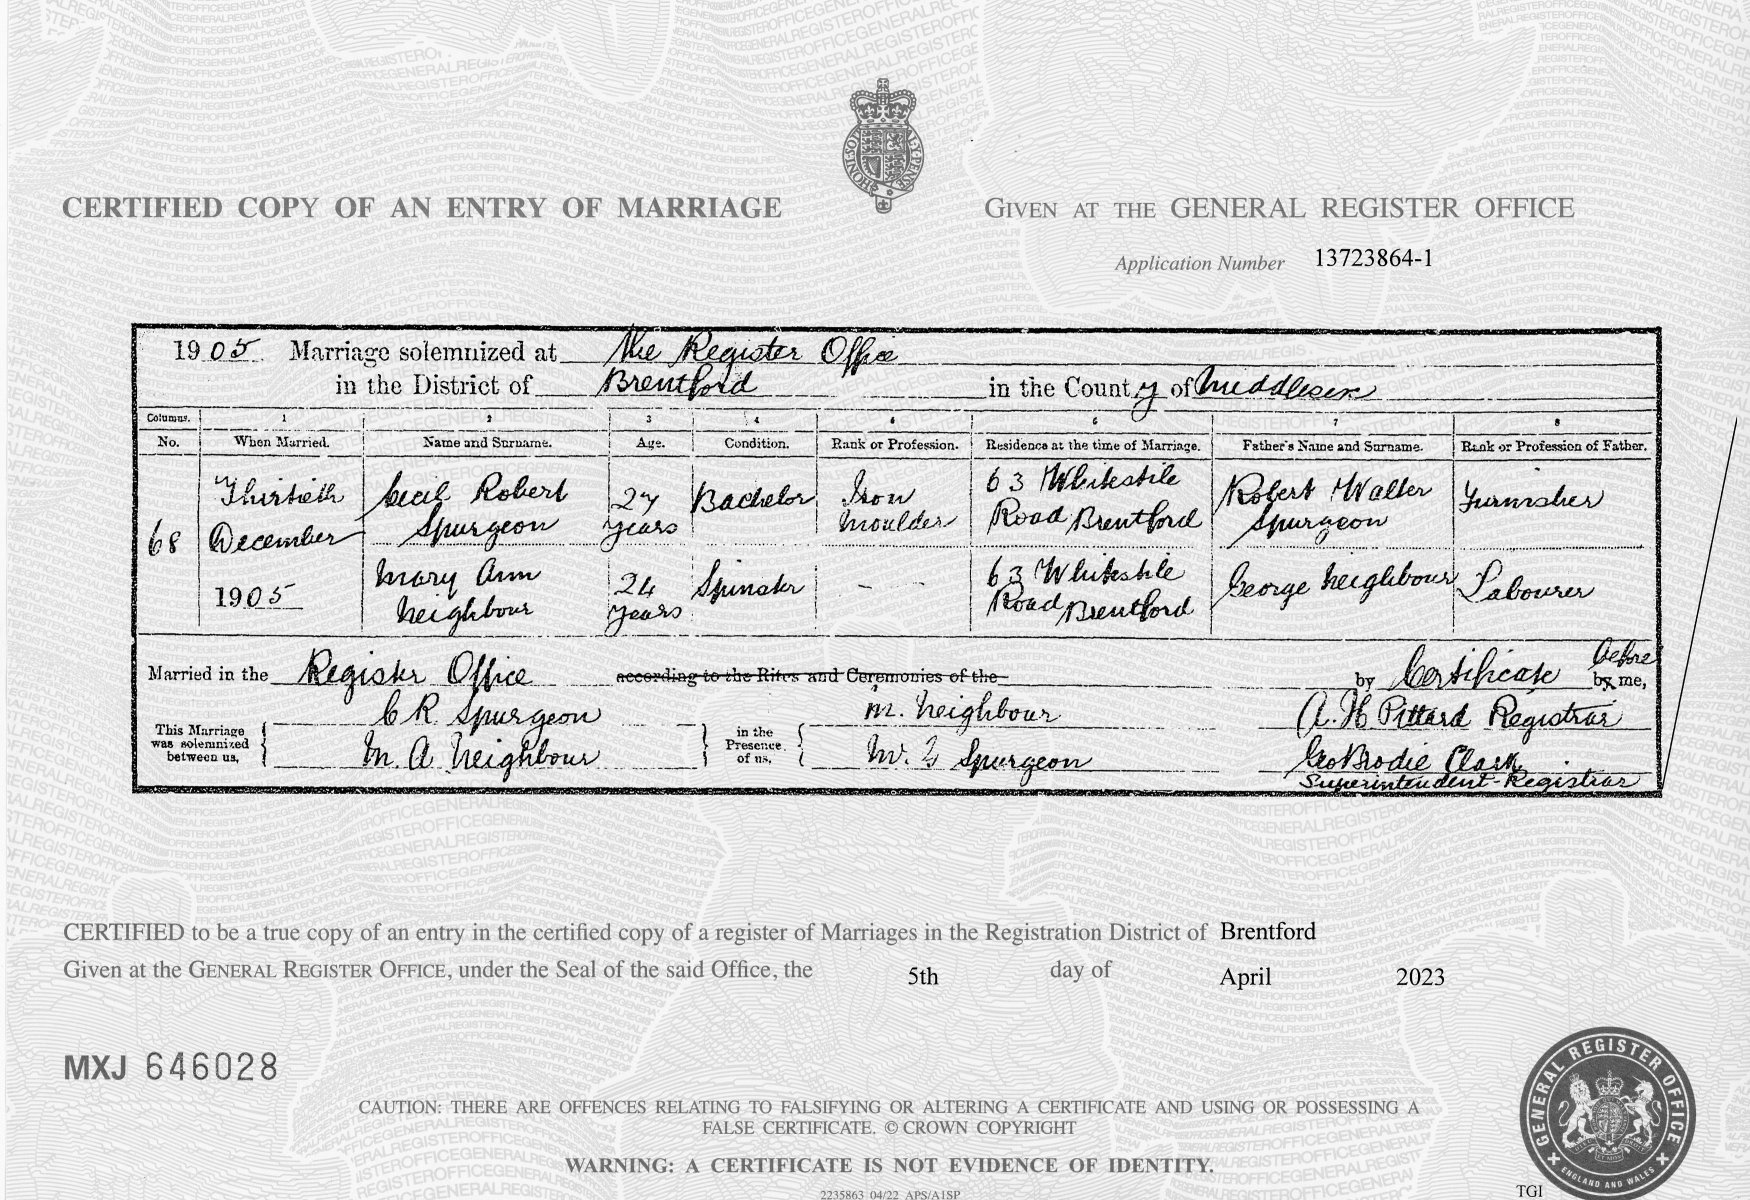 CERTIFIED COPY OF AN ENTRY OF MARRIAGE
GIVEN AT THE GENERAL REGISTER OFFICE
Application Number 13723864-1
1905 Marriage solemnized at The Register Office
in the District of Brentford in the County of Middlesex
Columns. 1 2 3 4 5 6 7 8
No. When Married. Name and Surname. Age. Condition. Rank or Profession. Residence at the time of Marriage. Father's Name and Surname. Rank or Profession of Father.
68 Thirtieth December 1905
Cecil Robert Spurgeon 27 years Bachelor Iron Moulder 63 Whitestile Road Brentford Robert Walter Spurgeon Furnisher
Mary Ann Neighbour 24 years Spinster — — 63 Whitestile Road Brentford George Neighbour Labourer
Married in the Register Office according to the Rites and Ceremonies of the by Certificate before by me,
This Marriage was solemnized between us, C R Spurgeon
M. A. Neighbour
in the Presence of us, M. Neighbour
Spurgeon
A. H. Pittard Registrar
Geo Brodie Clark
Superintendent Registrar
CERTIFIED to be a true copy of an entry in the certified copy of a register of Marriages in the Registration District of Brentford
Given at the GENERAL REGISTER OFFICE, under the Seal of the said Office, the 5th day of April 2023
MXJ 646028
CAUTION: THERE ARE OFFENCES RELATING TO FALSIFYING OR ALTERING A CERTIFICATE AND USING OR POSSESSING A
FALSE CERTIFICATE. © CROWN COPYRIGHT
WARNING: A CERTIFICATE IS NOT EVIDENCE OF IDENTITY.
2235863 04/22 APS/A1SP
TGI
GENERAL REGISTER OFFICE
ENGLAND AND WALES